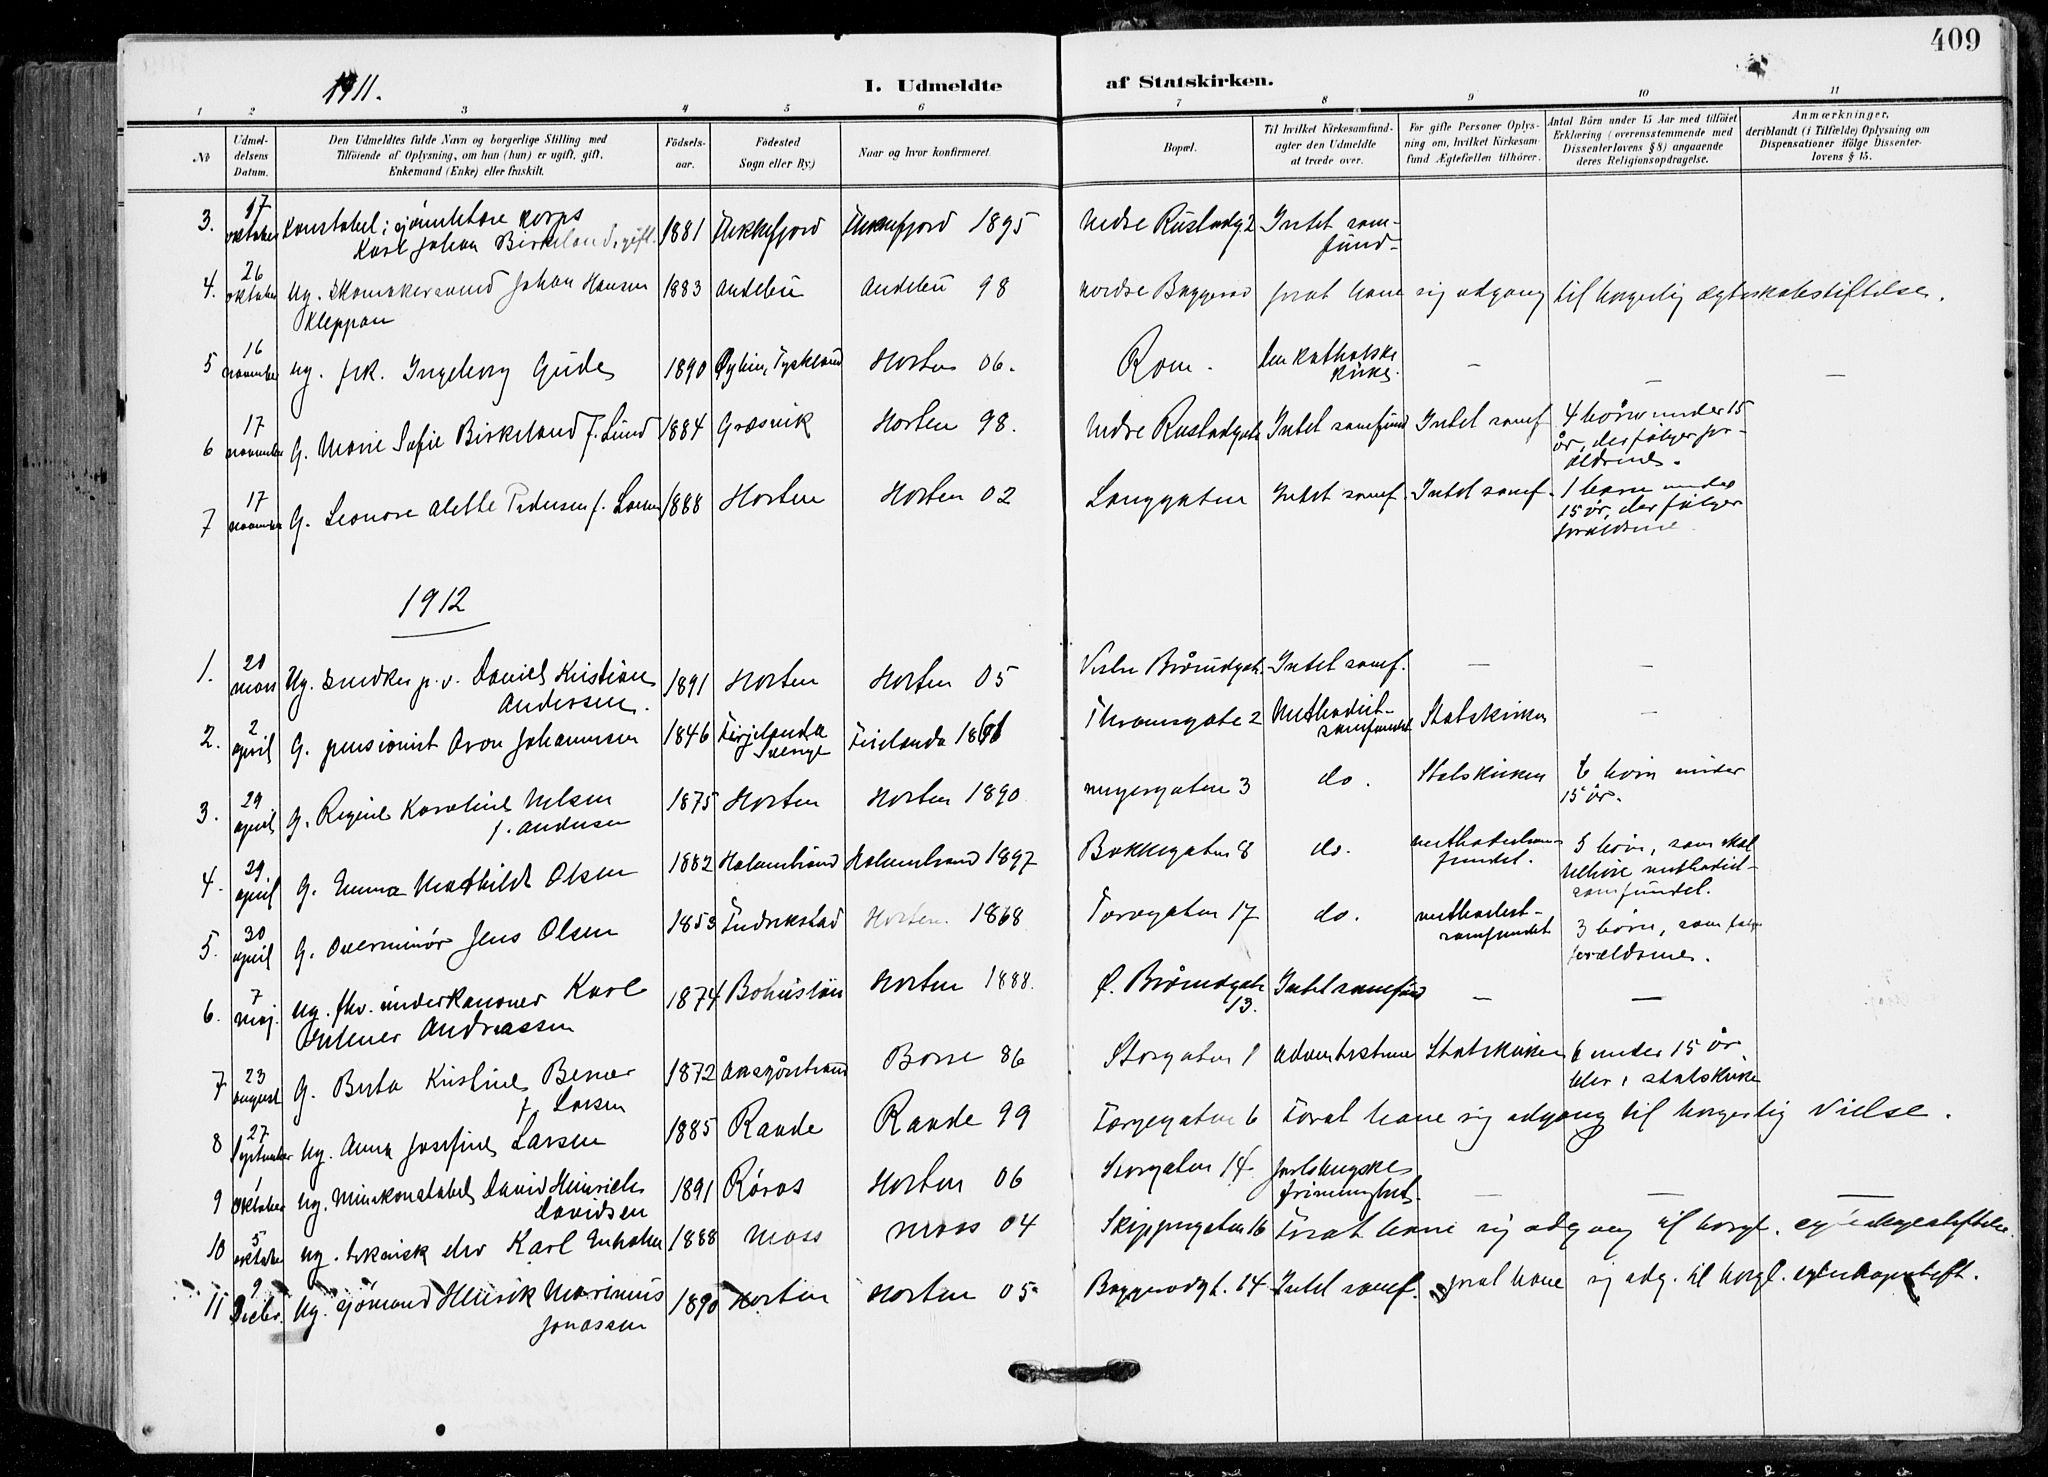 409
1911.
I. Udmeldte af Statskirken.
1 2 3 4 5 6 7 8 9 10 11
№
Udmel-
delsens
Datum.
Den Udmeldtes fulde Navn og borgerlige Stilling med
Tilføiende af Oplysning, om han (hun) er ugift, gift,
Enkemand (Enke) eller fraskilt.
Fødsels-
aar.
Fødested
Sogn eller By.)
Naar og hvor konfirmeret.
Bopæl.
Til hvilket Kirkesamfund-
agter den Udmeldte
at træde over.
For gifte Personer Oplys-
ning om, hvilket Kirkesam-
fund Ægtefællen tilhører.
Antal Børn under 15 Aar med tilføiet
Erklæring (overensstemmende med
Dissenterlovens § 8) angaaende
deres Religionsopdragelse.
Anmærkninger,
deriblandt (i Tilfælde) Oplysning om
Dispensationer ifølge Dissenter-
lovens § 15.
3. 17 oktober Konstabel i sjømilitære korps Karl Johan Birkeland, gift. 1881 Flekkefjord Flekkefjord 1895 Nedre Rustadg 2 Intet sam-
fund-
4. 26 oktober Ug. Skomakersvend Johan Hansen 1883 Andebu Andebu 98 nordre Baggerød for at have sig adgang til borgerlig ægteskabsstiftelse.
Kleppan
5 16 november ug. frk. Ingeborg Gude 1890 Tyskland Horten 06. Rom. Den katholske
kirke. — — —
6 17 november G. Marie Sofie Birkeland f. Lund 1884 Græsvik Horten 98. Nedre Rustadgate Intet samfund Intet samf 4 børn under 15
år, der følger for-
ældrene.
7 17 november G. Leonore Alette Pedersen f. Larsen 1888 Horten Horten 02 Langgaten Intet samf. Intet samf. 1 barn under
15 år, der følger
forældrene
1912
1. 20 mars Ug. snedker p. v. Daniel Kristian 1891 Horten Horten 05 Vestre Brårudgate. Intet samf. — —
Andersen.
2. 2 april G. pensionist Aron Johannesen 1846 Færjelanda
Sverige Færjelanda 1861 Thranesgate 2 Methodist-
samfundet Statskirken —
3. 29 april G. Regine Karoline Nelsen 1875 Horten Horten 1890 meyersgaten 3 do. Statskirken 6 børn under
15 år.
f. Andersen
4. 29. april G. Emma Mathilde Olsen 1882 Holmestrand Holmestrand 1897 Bakkegaten 8 do. methodistsam-
fundet. 5 børn, som skal
tilhøre methodist-
samfundet.
5. 30 april G. Overminør Jens Olsen 1853 Fredrikstad Horten 1868 Torvegaten 17 do. methodist-
samfundet 3 børn, som følger
forældrene.
6. 7 maj. ug. fhv. underkanoner Karl 1874 Bohuslän Horten 1888. Ø. Brårudgate
13. Intet samfund — —
Andreassen
7 23 august G. Berta Kristine 1872 Aasgårdstrand Borre 86 Storgaten 1 Adventisterne Statskirken 6 under 15 år,
blir i statskirken
f. Larsen
8 27 September ug. Anna Josefine Larsen 1885 Raade Raade 99 Torvegaten 6 For at have sig adgang til borgerlig vielse.
9 1 oktober ug. Minekonstabel David Hinrich 1891 Røros Horten 06 Storgaten 14. Jarlsbergske
frimenighet. — — —
Davidsen
10 5 oktober ug. teknisk elev Karl 1888 Moss Moss 04 Skippergaten 16 For at have sig adgang til borgl. egteskapsstiftelse.
11 9 Decbr. ug. sjømand Henrik Marinius 1890 Horten Horten 05 Baggerødgt. 14 Intet samf. for at have sig adg. til borgl. egteskapsstift.
Jonassen